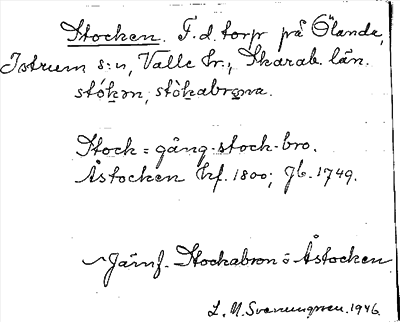 Stocken. F.d. torp på Ölanda,
Istrum s:n, Valle hr., Skarab. län.
stók̲ən; stòk̲abrωna.
Stock = gång-stock-bro.
Åstocken hf. 1800; Jb. 1749.
~ Jämf. Stockabron o Åstocken
L. M. Svenungsson. 1946.